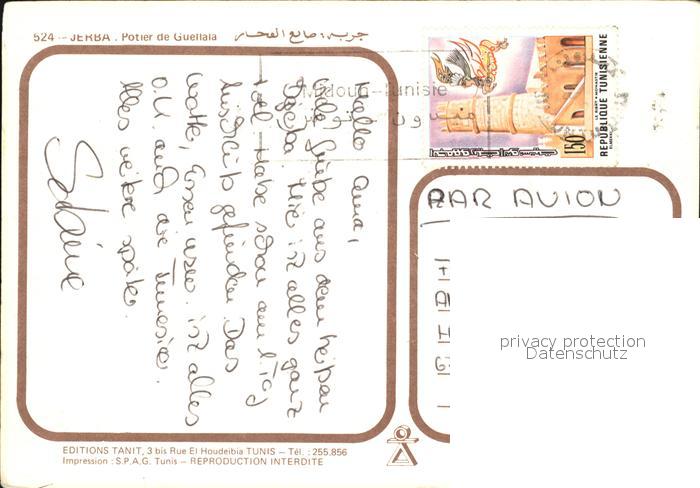 524 - JERBA . Potier de Guellala جربة : صانع الفخار
Midoun-Tunisie
ميدون تونس
REPUBLIQUE TUNISIENNE
150
PAR AVION
Hallo Oma,
viele Grüße aus dem heißen
Djerba. Hier ist alles ganz
toll. Habe schon am 1. Tag
gefunden. Das
Wetter, Essen usw. ist alles
o.k. auch die Tunesier.
Alles weitere später.
Sabine
privacy protection
Datenschutz
EDITIONS TANIT, 3 bis Rue El Houdeibia TUNIS - Tél. : 255.856
Impression : S.P.A.G. Tunis - REPRODUCTION INTERDITE